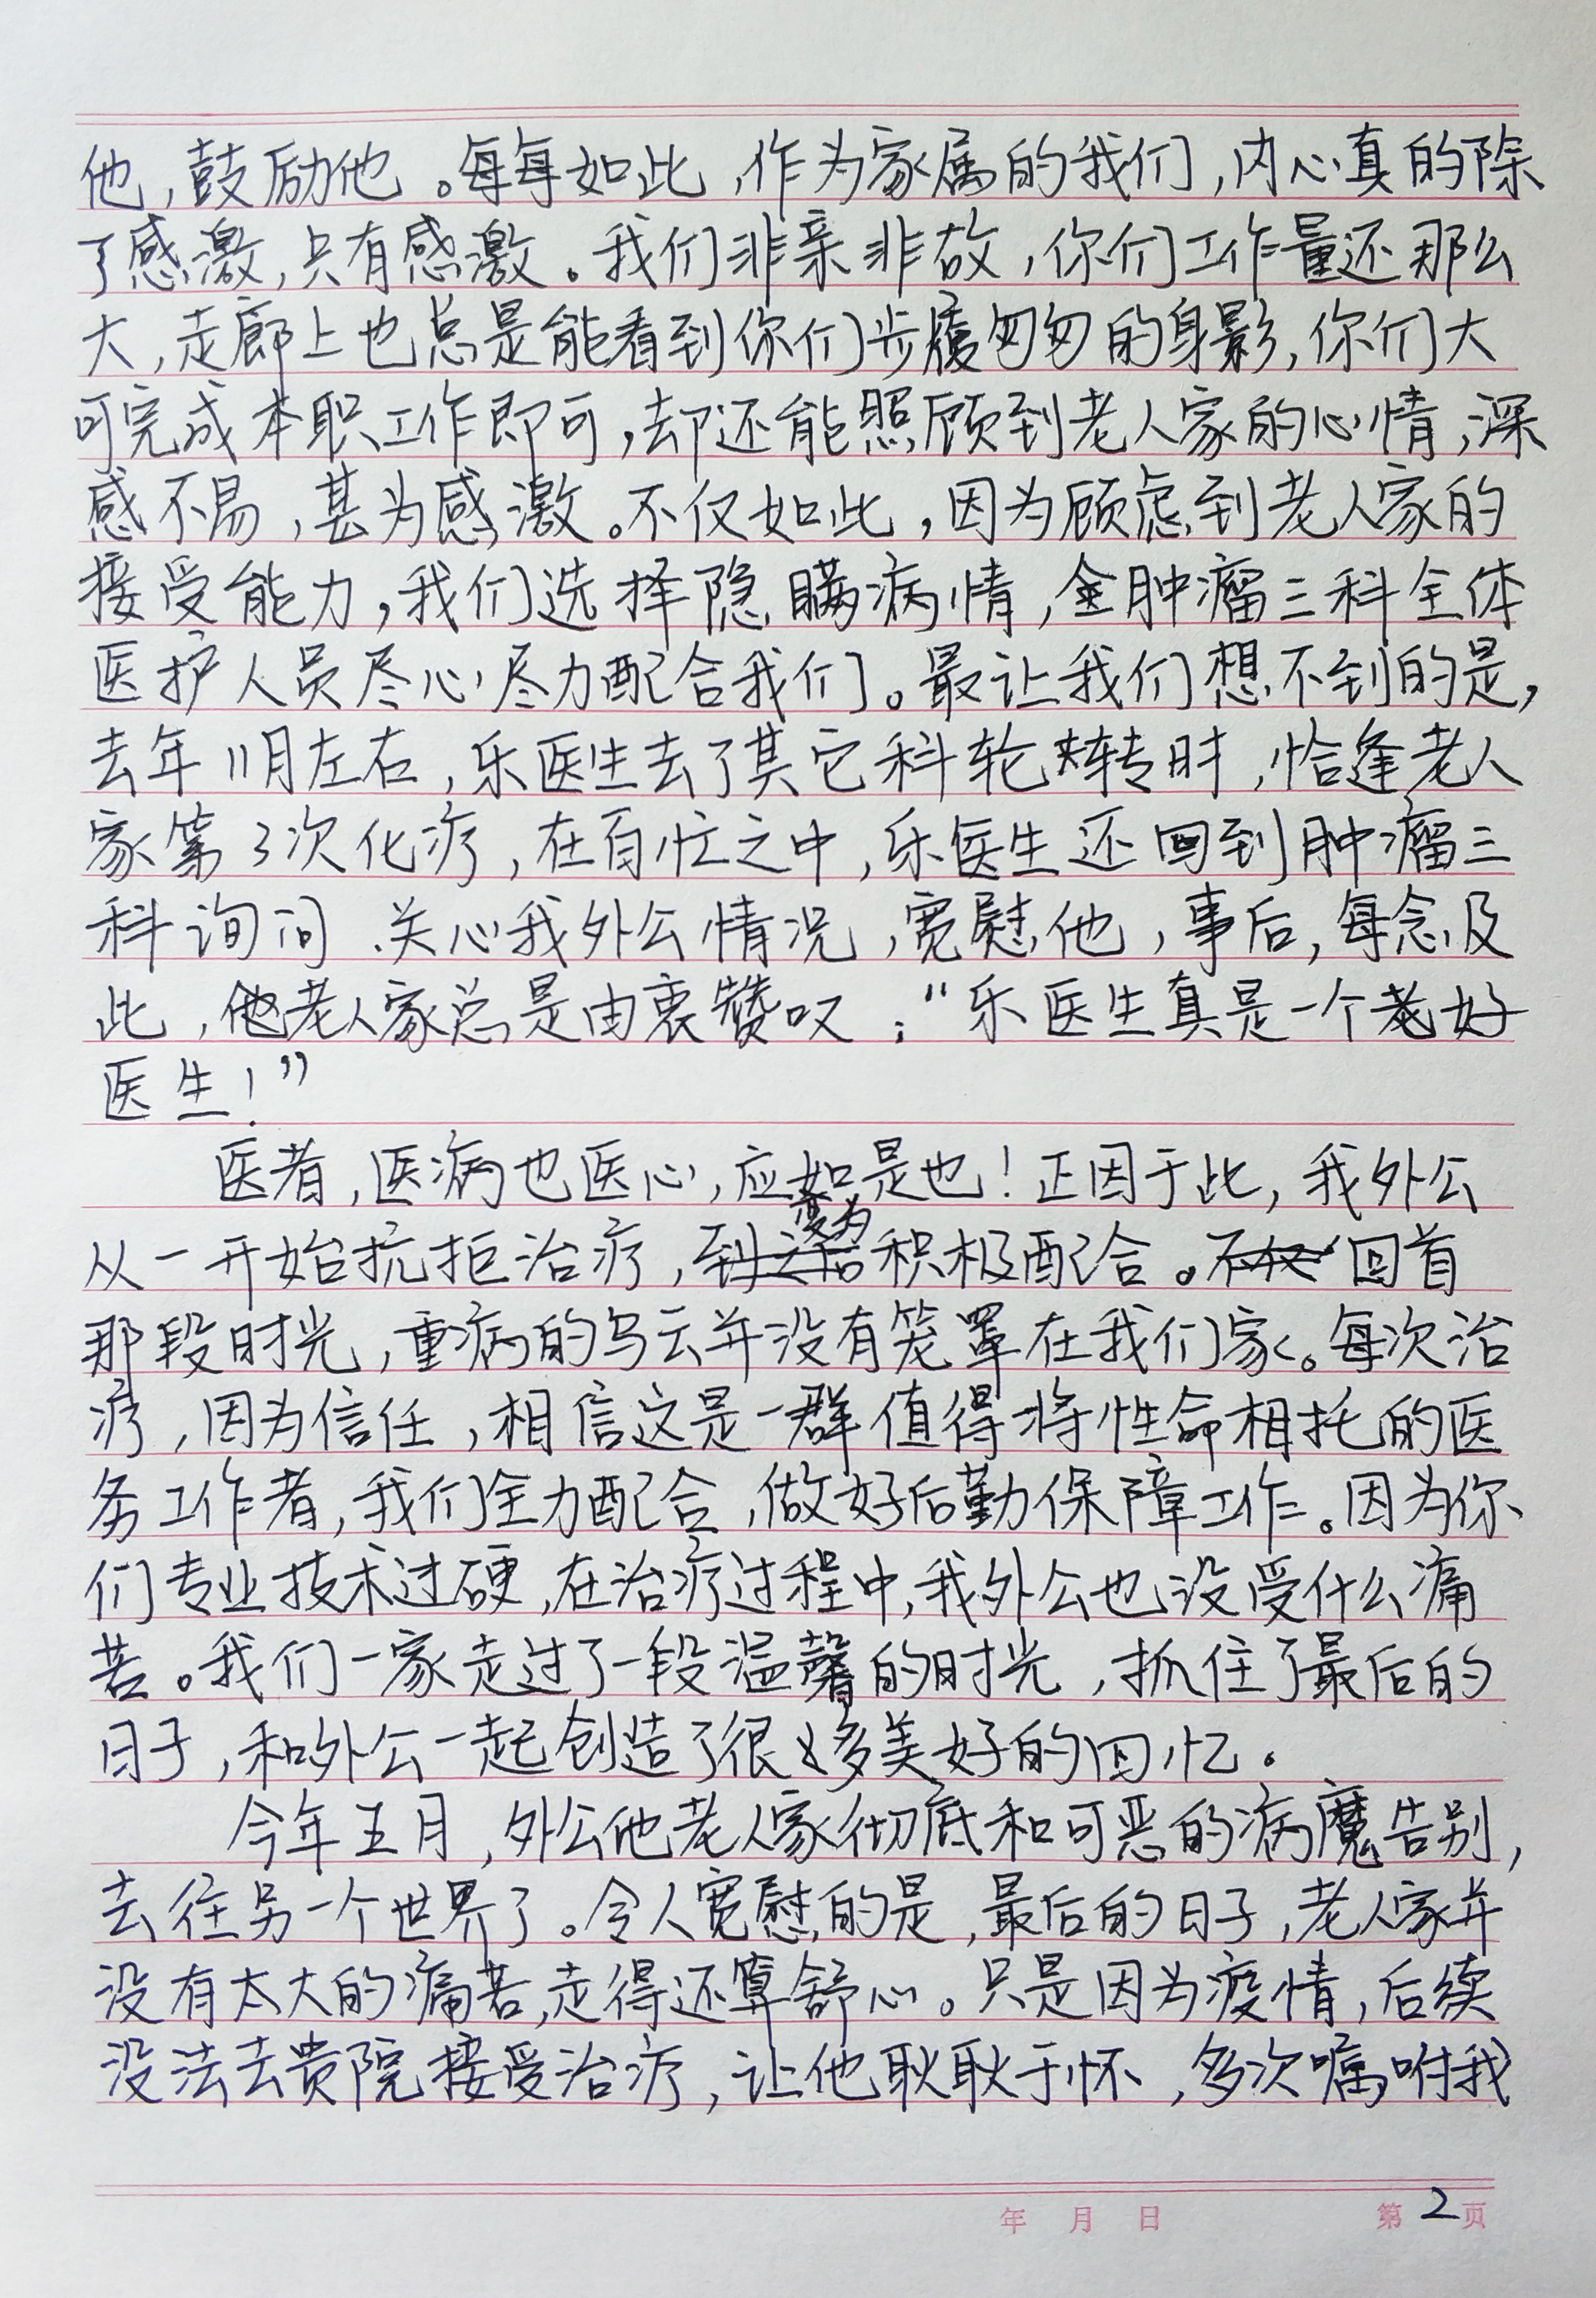 他，鼓励他。每每如此，作为家属的我们，内心真的除
了感激，只有感激。我们非亲非故，你们工作量还那么
大，走廊上也总是能看到你们步履匆匆的身影，你们大
可完成本职工作即可，却还能照顾到老人家的心情，深
感不易，甚为感激。不仅如此，因为顾虑到老人家的
接受能力，我们选择隐瞒病情，金肿瘤三科全体
医护人员尽心尽力配合我们。最让我们想不到的是，
去年11月左右，乐医生去了其它科轮转时，恰逢老人
家第3次化疗，在百忙之中，乐医生还回到肿瘤三
科询问、关心我外公情况，宽慰他，事后，每念及
此，他老人家总是由衷赞叹：“乐医生真是一个好
医生！”
医者，医病也医心，应如是也！正因于此，我外公
从一开始抗拒治疗，变为积极配合。回首
那段时光，重病的乌云并没有笼罩在我们家。每次治
疗，因为信任，相信这是一群值得将性命相托的医
务工作者，我们全力配合，做好后勤保障工作。因为你
们专业技术过硬，在治疗过程中，我外公也没受什么痛
苦。我们一家走过了一段温馨的时光，抓住了最后的
日子，和外公一起创造了很多美好的回忆。
今年五月，外公他老人家彻底和可恶的病魔告别，
去往另一个世界了。令人宽慰的是，最后的日子，老人家并
没有太大的痛苦，走得还算舒心。只是因为疫情，后续
没法去贵院接受治疗，让他耿耿于怀，多次嘱咐我
年 月 日 第2页